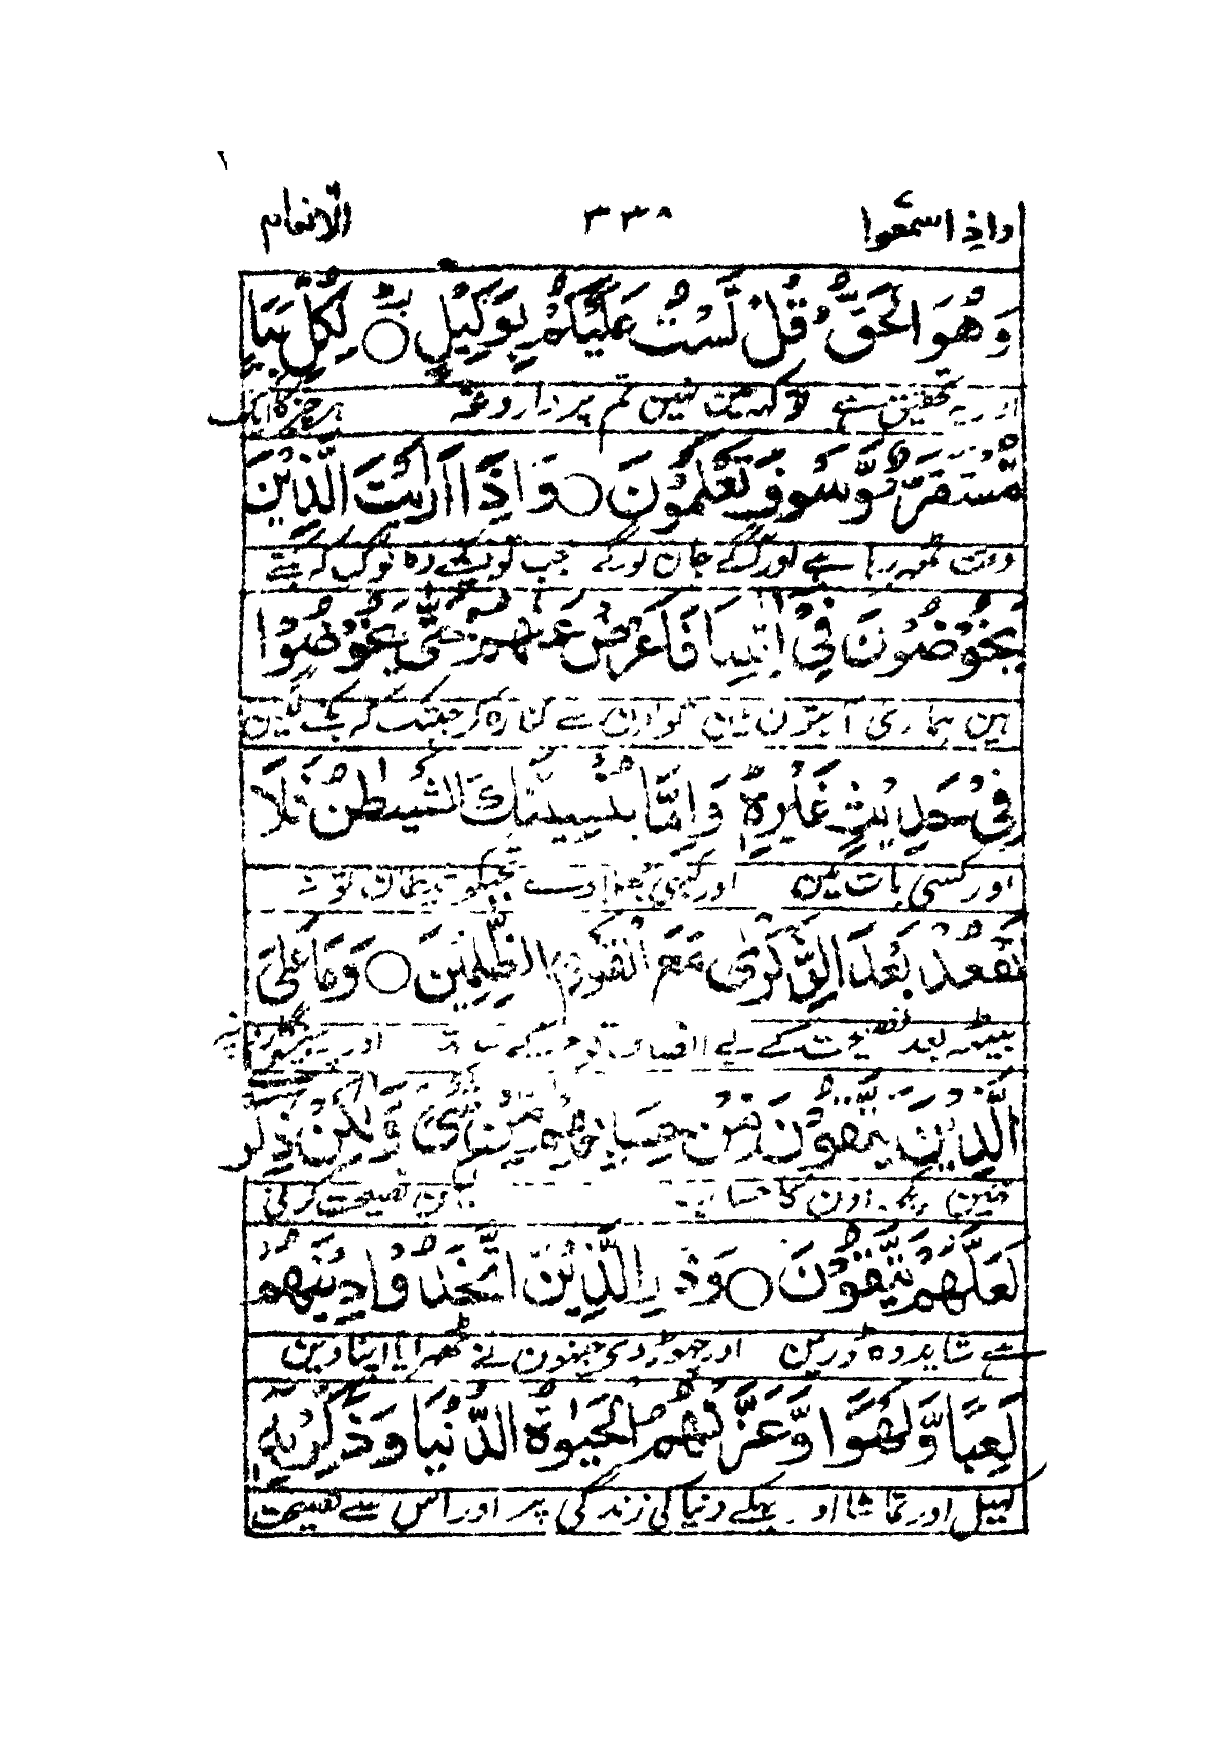 واذا سمعوا ٣٣٨ الانعام
وَهُوَ الْحَقُّ قُلْ لَّسْتُ عَلَيْكُمْ بِوَكِيْلٍ ○ لِكُلِّ نَبَاٍ
اور یہ تحقیق ہے تو کہہ مین نہین تم پر داروغہ ہر چیز کا ایک
مُّسْتَقَرٌّ وَّسَوْفَ تَعْلَمُوْنَ ○ وَاِذَا رَاَيْتَ الَّذِيْنَ
وقت ٹھہر رہا ہے اور آگے جان لوگے جب تو دیکھے وہ لوگ کہ
يَخُوْضُوْنَ فِيْ اٰيٰتِنَا فَاَعْرِضْ عَنْهُمْ حَتّٰى يَخُوْضُوْا
ہین ہماری آیتون مین تو اون سے کنارہ کر جبتک کہ بکنے لگین
فِيْ حَدِيْثٍ غَيْرِهٖ وَاِمَّا يُنْسِيَنَّكَ الشَّيْطٰنُ فَلَا
اور کسی بات مین اور کبھی بھلا دے تجھکو شیطان تو نہ
تَقْعُدْ بَعْدَ الذِّكْرٰى مَعَ الْقَوْمِ الظّٰلِمِيْنَ ○ وَمَا عَلَى
بیٹھہ بعد نصیحت کے بے انصاف قوم کے ساتھ اور پرہیزگارون پر
الَّذِيْنَ يَتَّقُوْنَ مِنْ حِسَابِهِمْ مِّنْ شَيْءٍ وَّلٰكِنْ ذِكْرٰى
نہین کچھ اون کا حساب لیکن نصیحت کرنی
لَعَلَّهُمْ يَتَّقُوْنَ ○ وَذَرِ الَّذِيْنَ اتَّخَذُوْا دِيْنَهُمْ
ہے شاید وہ ڈرین اور چھوڑ دی جنھون نے ٹھہرایا اپنا دین
لَعِبًا وَّلَهْوًا وَّغَرَّتْهُمُ الْحَيٰوةُ الدُّنْيَا وَذَكِّرْ بِهٖ
کھیل اور تماشا اور بہکے دنیا کی زندگی پر اور اس سے نصیحت